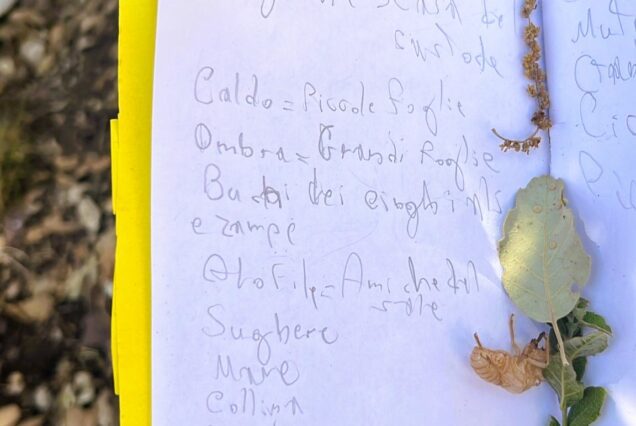 custode
Caldo = Piccole foglie
Ombra = Grandi Foglie
Buchi dei cinghiali
e zampe
Alofile = Amiche del
sale
Sughere
Mare
Collina